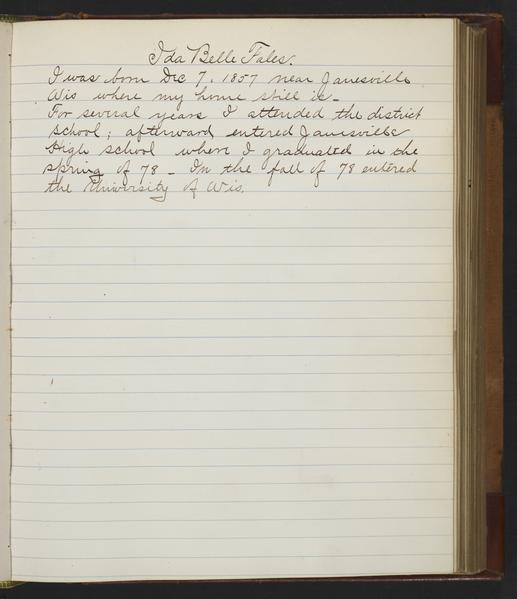 Ida Belle Fales.
I was born Dec 7, 1857 near Janesville
Wis where my home still is.
For several years I attended the district
school; afterward entered Janesville
High school where I graduated in the
spring of 78 - In the fall of 78 entered
the University of Wis.